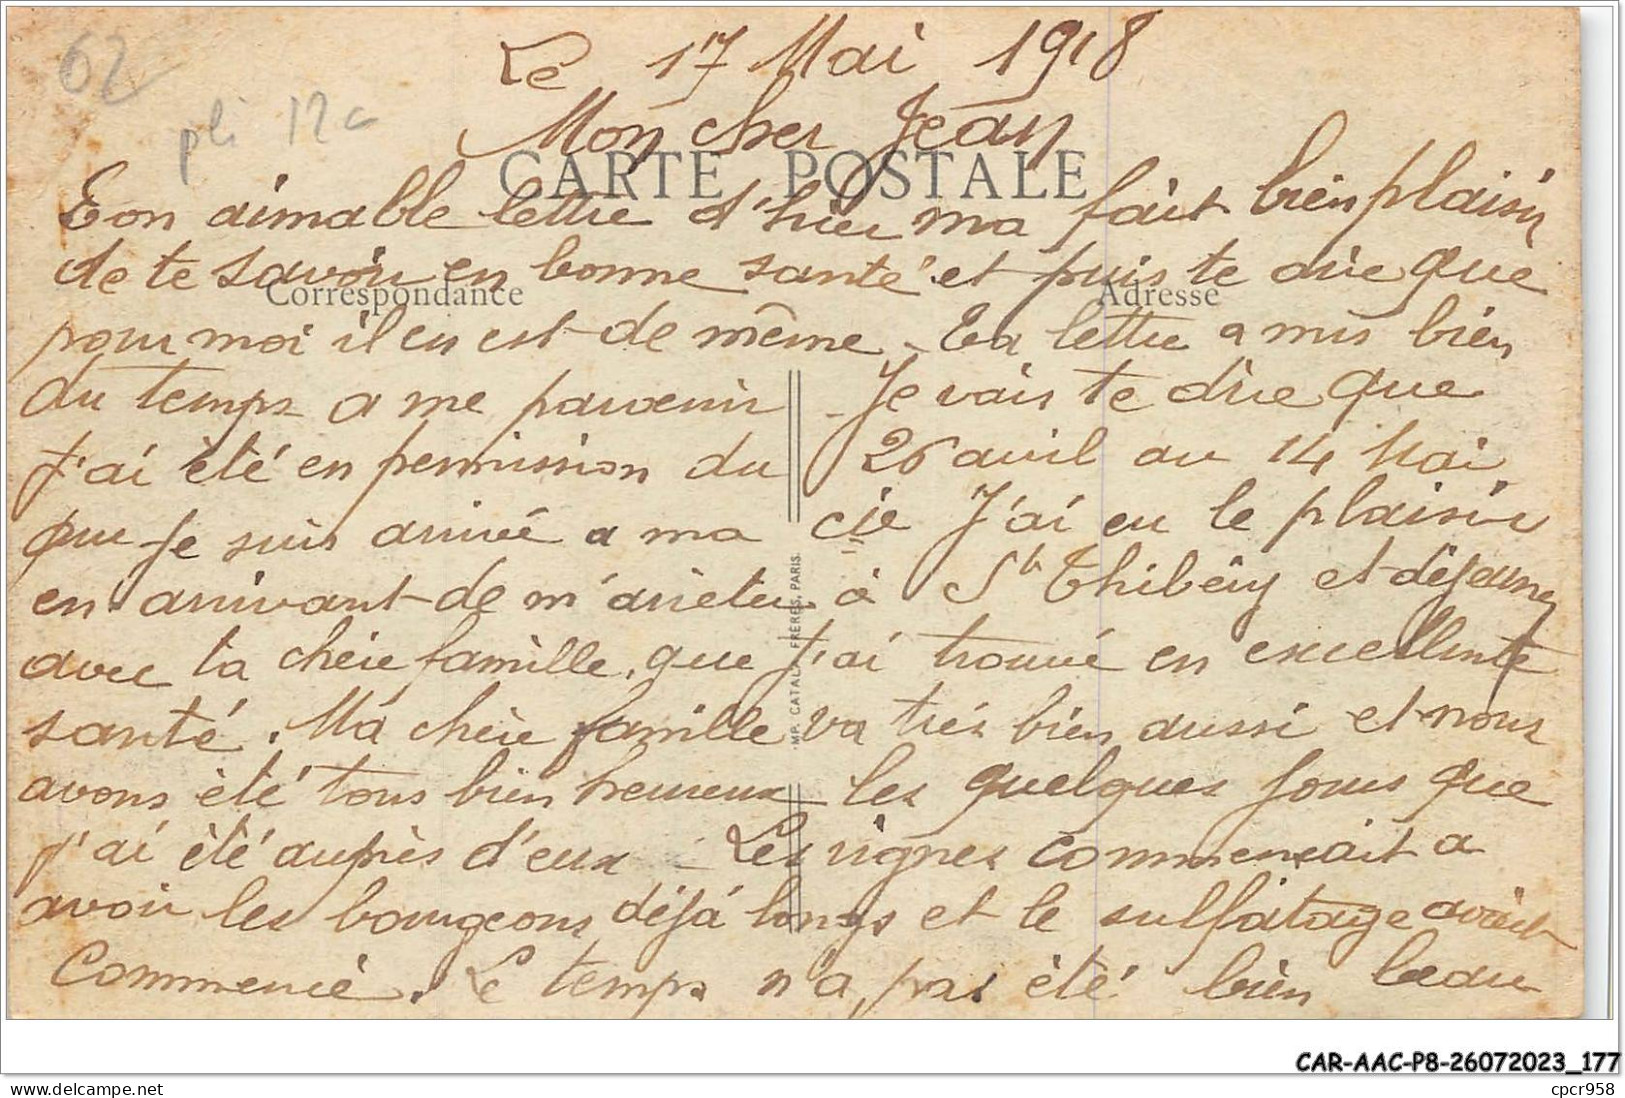 62
pli 12c
Le 17 Mai 1918
Mon cher Jean
CARTE POSTALE
Ton aimable lettre d'hier ma fait bien plaisir
de te savoir en bonne santé et puis te dire que
Correspondance
Adresse
pour moi il en est de même - Ta lettre a mis bien
du temps a me parvenir - Je vais te dire que
j'ai été en permission du 26 avril au 14 Mai
que je suis arrivé a ma cie J'ai eu le plaisir
en arrivant de m'arrêter à St Thibéry et déjeuner
avec ta chère famille, que j'ai trouvé en excellente
santé. Ma chère famille va très bien aussi et nous
avons été tous bien heureux les quelques jours que
j'ai été auprès d'eux - Les vignes commençait a
avoir les bourgeons déjà longs et le sulfatage avait
Commencé. Le temps n'a pas été bien beau
IMP. CATALA FRÈRES, PARIS.
CAR-AAC-P8-26072023_177
https://www.delcampe.net
cpcr958